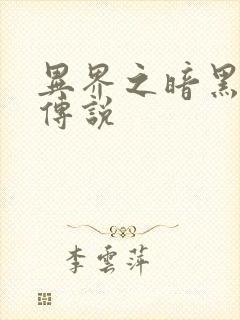 異界之暗黑
傳說
李雲萍